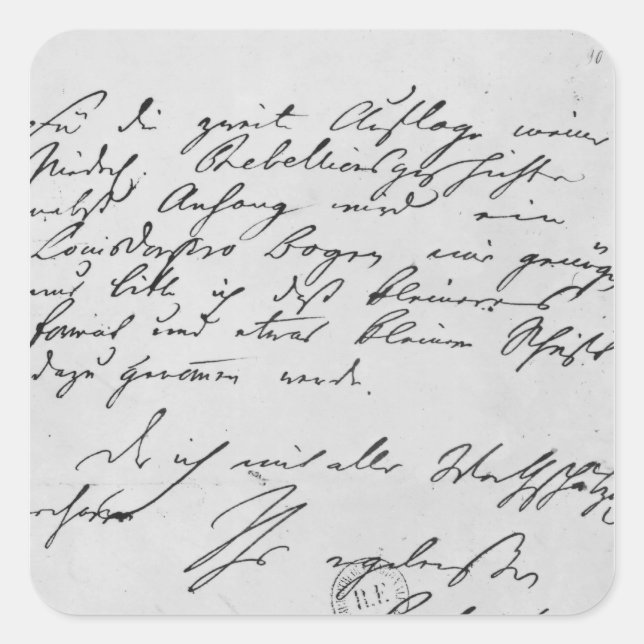 90
Für die zweite Auflage meiner
Niederl. Rebellionsgeschichte
nebst Anhang wird ein
Louisdor pro Bogen mir genüge
und bitte ich daß kleineres
Format und etwas kleinere Schrift
dazu genommen werde.
Der ich mit aller Werthschätzu
Ihr ergebenster
R.F.